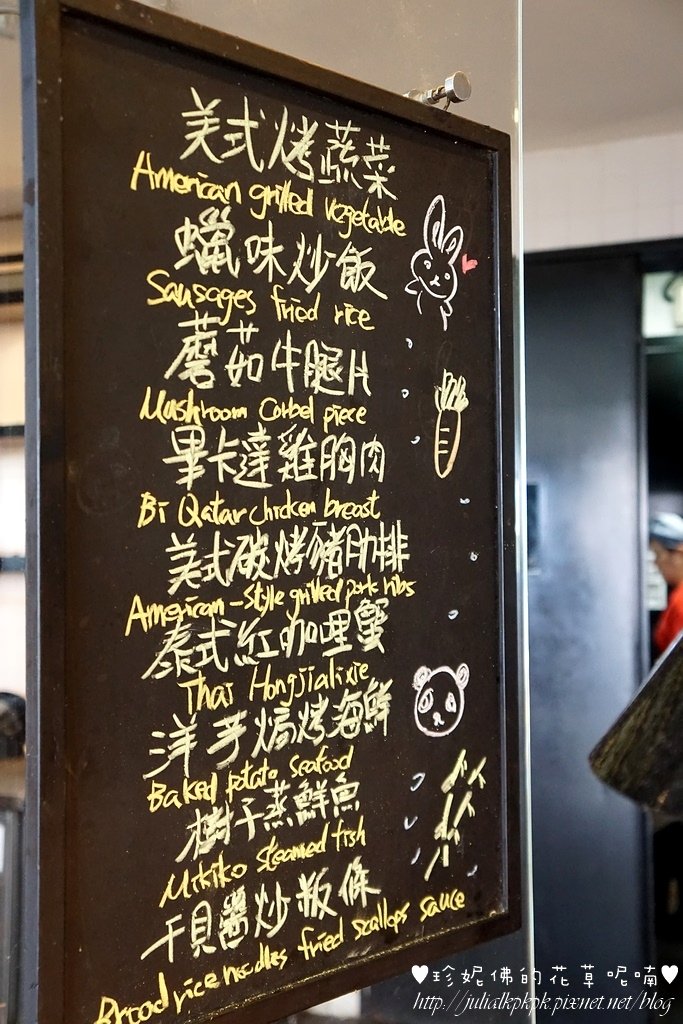 美式烤蔬菜
American grilled vegetable
蠟味炒飯
Sausages fried rice
蘑菇牛腿片
Mushroom Corbel piece
畢卡達雞胸肉
Bi Qatar chicken breast
美式碳烤豬肋排
American-style grilled pork ribs
泰式紅咖哩蟹
Thai Hongjialixie
洋芋焗烤海鮮
Baked potato seafood
樹子蒸鮮魚
Mikiko steamed fish
干貝醬炒粄條
Broad rice noodles fried scallops sauce
♥珍妮佛的花草呢喃♥
http://julialkpkpk.pixnet.net/blog